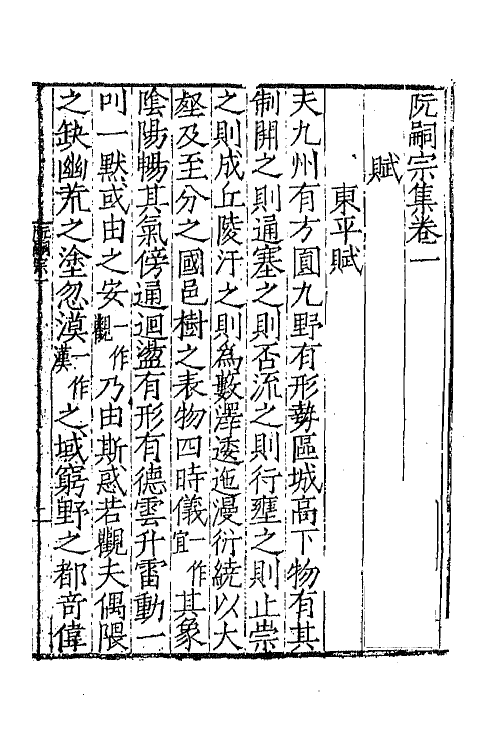 阮嗣宗集卷一
賦
東平賦
夫九州有方圓九野有形勢區城高下物有其
制開之則通塞之則否流之則行壅之則止崇
之則成丘陵汙之則為藪澤逶迤漫衍繞以大
壑及至分之國邑樹之表物四時儀一作宜其象
陰陽暢其氣傍通迴盪有形有德雲升雷動一
叫一默或由之安一作觀乃由斯惑若觀夫偶隈
之缺幽荒之塗忽漠一作漢之域窮野之都奇偉